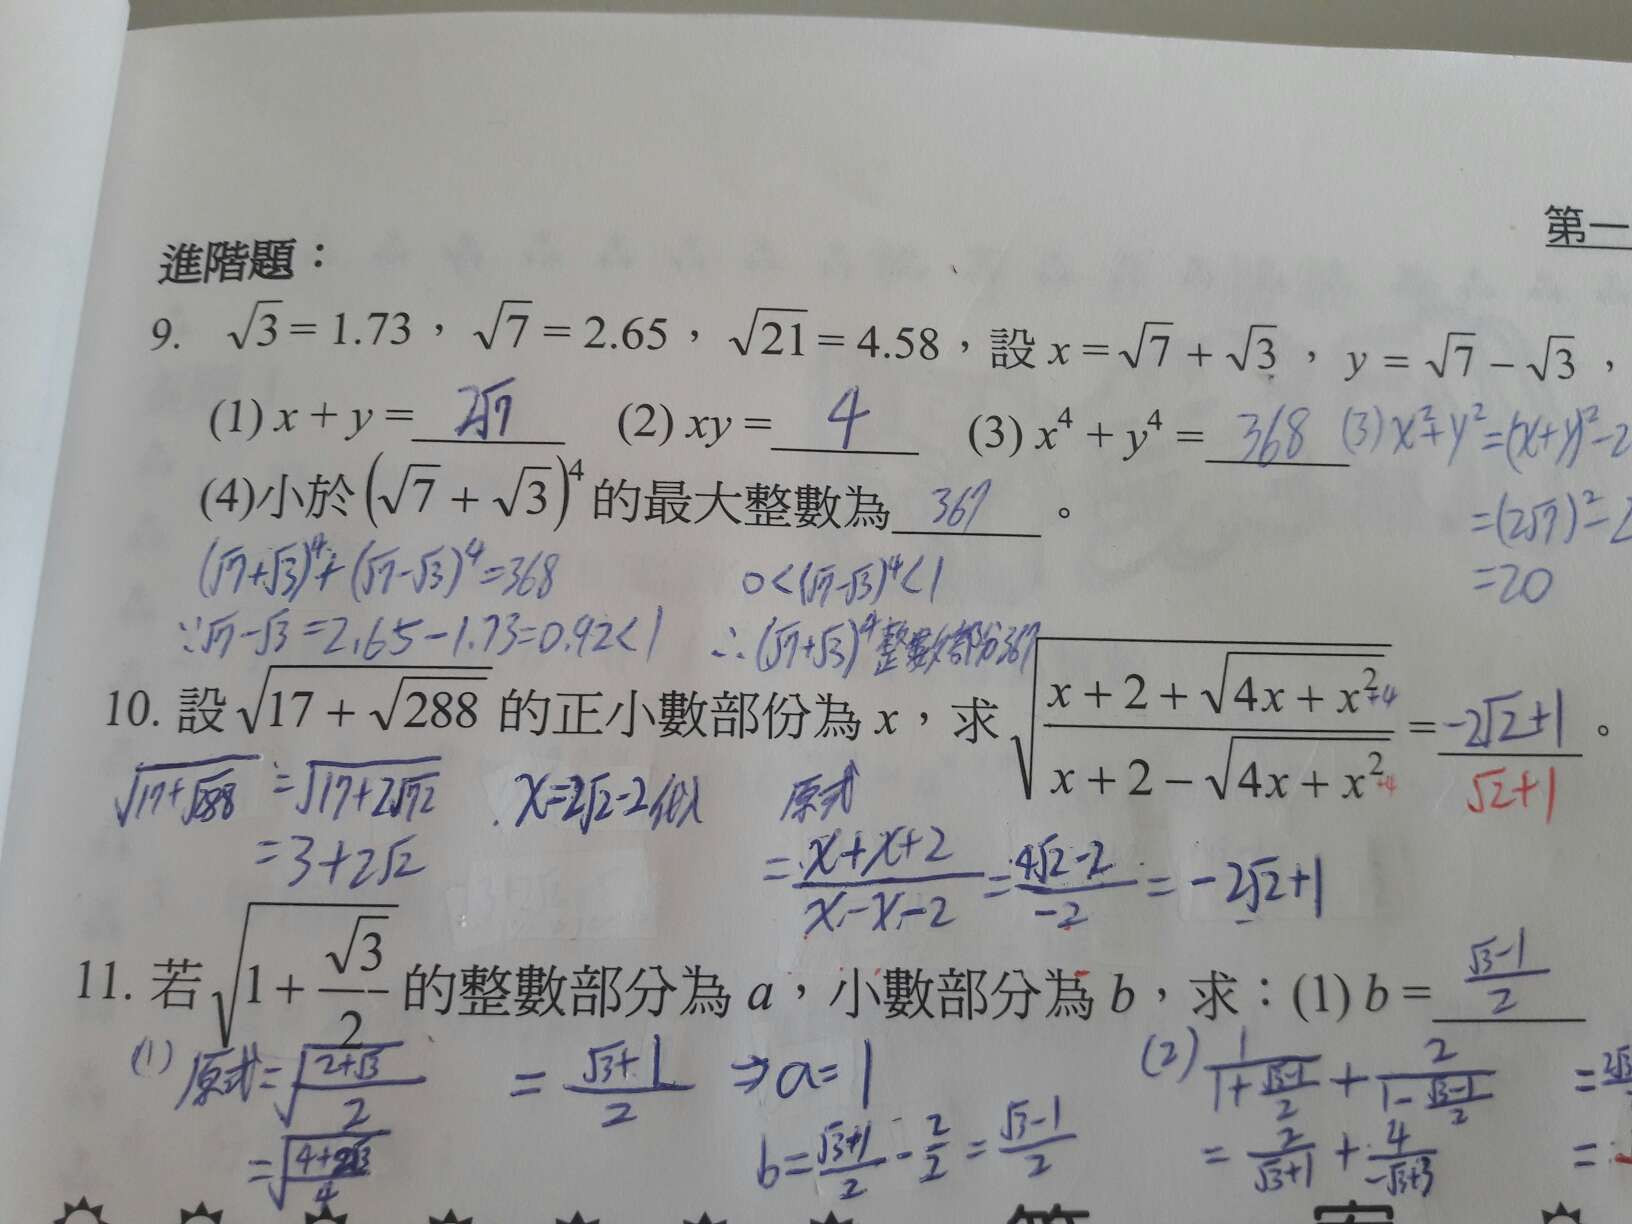 第一
進階題：
9. √3 = 1.73，√7 = 2.65，√21 = 4.58，設 x = √7 + √3，y = √7 − √3，
(1) x + y = 2√7 (2) xy = 4 (3) x⁴ + y⁴ = 368 (3) x²+y²=(x+y)²−2
(4)小於(√7 + √3)⁴的最大整數為 367 。
=(2√7)²−2
(√7+√3)⁴+(√7−√3)⁴=368 0<(√7−√3)⁴<1
=20
∵√7−√3=2.65−1.73=0.92<1 ∴(√7+√3)⁴整數部分367
10. 設√(17 + √288) 的正小數部份為 x，求√((x + 2 + √(4x + x²))/(x + 2 − √(4x + x²))) = −2√2+1 。
−4
−4
√2+1
√(17+√288) = √(17+2√72) x=2√2−2代入 原式
=3+2√2 = (x+x+2)/(x−x−2) = (4√2−2)/(−2) = −2√2+1
11. 若√(1 + √3/2) 的整數部分為 a，小數部分為 b，求：(1) b = (√3−1)/2
(1) 原式=√((2+√3)/2) = (√3+1)/2 ⇒a=1 (2) 1/(1+(√3−1)/2) + 2/(1−(√3−1)/2) =
=√((4+2√3)/4) b=(√3+1)/2 − 2/2 = (√3−1)/2 = 2/(√3+1) + 4/(−√3+3) =
答 案